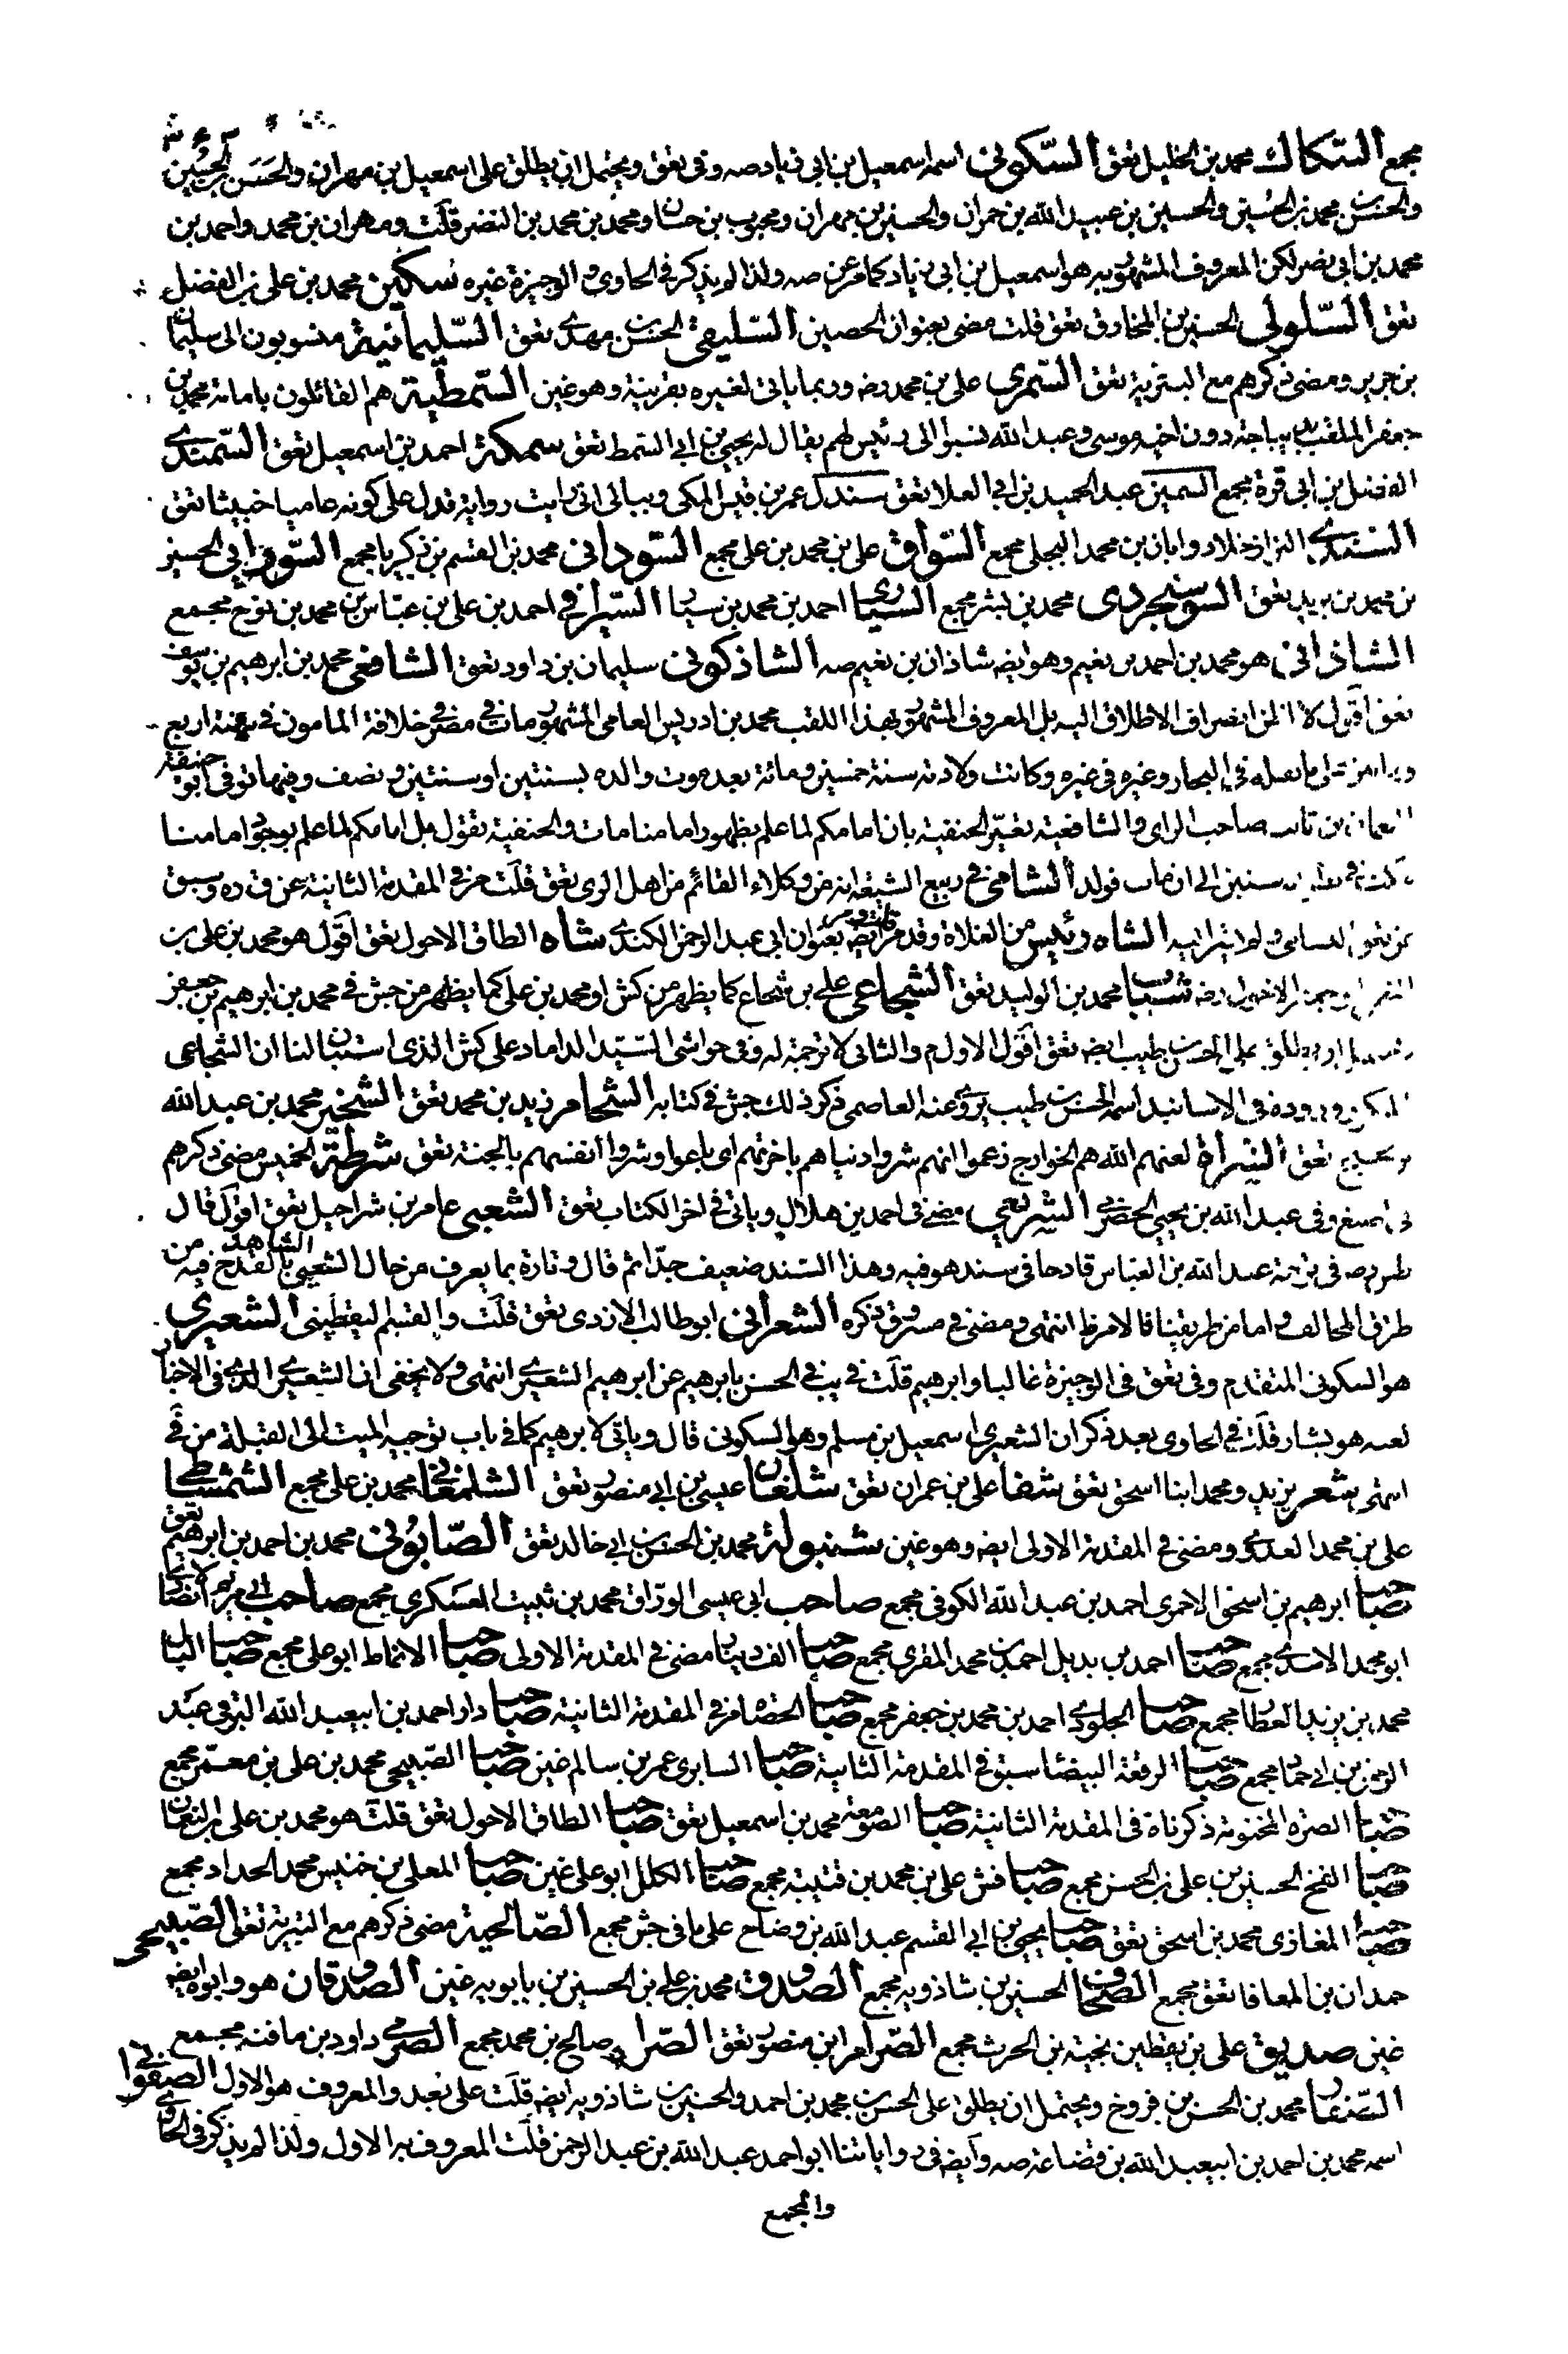 مجمع السكاك محمد بن الخليل تعق السكونى اسمه اسمعيل بن ابى زياد صه وفى تعق ويحتمل ان يطلق على اسمعيل بن مهران والحسن بن الحسين
والحسن بن محمد بن الحسين والحسين بن عبيد الله بن حمران والحسين بن مهران ومحبوب بن حسان ومحمد بن محمد بن النضر قلت ومهران بن محمد واحمد بن
محمد بن ابى نصر لكن المعروف المشهور به هو اسمعيل بن ابى زياد كما مر عن صه ولذا لم يذكر فى الحاوى و الوجيزة غيره سكين محمد بن على بن الفضل
تعق السلولى الحسين بن المخارق تعق قلت مضى بعنوان الحصين السليقى الحسن بن مهدى تعق السليمانية منسوبون الى سليمان
بن جرير ومضى ذكرهم مع البترية تعق السمرى على بن محمد رضه وربما ياتى لغيره بقرينة وهو غين السمطية هم القائلون بامامة محمد بن
جعفر الملقب بديباجة دون اخيه موسى وعبد الله نسبوا الى رئيس لهم يقال له يحيى بن ابى السمط تعق سمكة احمد بن اسمعيل تعق السمندى
الفضل بن ابى قرة مجمع السمين عبد الحميد بن ابى العلا تعق سندل عمر بن قيس المكى وببالى انى رايت رواية تدل على كونه عاميا خبيثا تعق
السندى البزاز خلاد وابان بن محمد البجلى مجمع السواق على بن محمد بن على مجمع السودانى محمد بن القسم بن زكريا مجمع السورائى الحسين
بن يزيد تعق السوسنجردى محمد بن بشر مجمع السيارى احمد بن محمد بن سيار السيرافى احمد بن على بن عباس بن محمد بن نوح مجمع
الشاذانى هو محمد بن احمد بن نعيم وهو ايضه شاذان بن نعيم صه الشاذكونى سليمان بن داود تعق الشافعى محمد بن ابرهيم بن يوسف
تعق اقول لا انصراف الاطلاق اليه بل المعروف المشهور بهذا اللقب محمد بن ادريس العامى المشهور مات فى مصر فى خلافة المامون فى سنة اربع
فى البحار وغيره فى غيره وكانت ولادته سنة خمسين ومائة بعد موت والده بسنتين او سنتين ونصف وفيها توفى ابو حنيفة
النعمان بن ثابت صاحب الراى والشافعية تعير الحنفية بان امامكم لما علم بظهور امامنا مات والحنفية تقول بل امامكم لما علم بوجود امامنا
سنين الى ان مات فولد الشامى فى ربيع الشيعة انه من وكلاء القائم من اهل الرى تعق قلت مر فى المقدمة الثانية عن ده وسبق
عن تعق الشاه رئيس من الغلاة وقد مر ايضه بعنوان ابى عبد الرحمن الكندى شاه الطاق الاحول تعق اقول هو محمد بن على بن
رضه شباب محمد بن الوليد تعق الشجاعى على بن شجاع كما يظهر من كش او محمد بن على كما يظهر من جش فى محمد بن ابرهيم بن جعفر
على الحسن بن طيب ايضه تعق اقول الاول م والثانى لا ترجمة له وفى حواشى السيد الداماد على كش الذى استبان لنا ان الشجاعى
وروده فى الاسانيد اسمه الحسن بن طيب يروى عنه العاصمى ذكر ذلك جش فى كتابه الشحام زيد بن محمد تعق الشخير محمد بن عبد الله
تعق الشراة لعنهم الله هم الخوارج زعموا انهم شروا دنياهم باخرتهم اى باعوا وشروا انفسهم بالجنة تعق شرطة الخميس مضى ذكرهم
فى اصبغ وفى عبد الله بن يحيى الحضرمى الشريعى مضى فى احمد بن هلال وياتى فى اخر الكتاب تعق الشعبى عامر بن شراحيل تعق اقول قال
فى ترجمة عبد الله بن العباس قادحا فى سند هو فيه وهذا السند ضعيف جدا ثم قال وتارة بما يعرف من حال الشعبى الشاهد بالقدح فيه من
طرق المخالف واما من طريقنا فالامر ظ انتهى ومضى فى مسروق ذكره الشعرانى ابو طالب الازدى تعق قلت والقسم اليقطينى الشعيرى
هو السكونى المتقدم وفى تعق فى الوجيزة غالبا وابرهيم قلت فى يب فى الحسن بابرهيم عن ابرهيم الشعيرى انتهى ولا يخفى ان الشعيرى الذى فى الاخبار
لعنه هو بشار قلت فى الحاوى بعد ذكر ان الشعيرى اسمعيل بن مسلم وهو السكونى قال وياتى لابرهيم كما فى باب توجيه الميت الى القبلة من فى
انتهى شعر يزيد ومحمد ابنا اسحق تعق شفا على بن عمران تعق شلقان عيسى بن ابى منصور تعق الشلمغانى محمد بن على مجمع الشمشاطى
على بن محمد العدوى ومضى فى المقدمة الاولى ايضه وهو غين شنبولة محمد بن الحسن بن ابى خالد تعق الصابونى محمد بن احمد بن ابرهيم تعق
صاحب ابرهيم بن اسحق الاحمرى احمد بن عبد الله الكوفى مجمع صاحب ابى عيسى الوراق محمد بن ثبيت العسكرى مجمع صاحب ابى مريم الانصارى
ابو محمد الاسدى مجمع صاحب احمد بن بديل احمد بن محمد المقرى مجمع صاحب الف دينار مضى فى المقدمة الاولى صاحب الانماط ابو على مجمع صاحب البان
محمد بن يزيد العطار مجمع صاحب الجلودى احمد بن محمد بن جعفر مجمع صاحب الحصاة مر فى المقدمة الثانية صاحب دار احمد بن ابيعبد الله البرقى عبد
الرحمن بن ابى حماد مجمع صاحب الرقعة البيضا سبق فى المقدمة الثانية صاحب السابرى عمر بن سالم غين صاحب الصبيحى محمد بن على بن معمر مجمع
صاحب الصرة المختومة ذكرناه فى المقدمة الثانية صاحب الصومعة محمد بن اسمعيل تعق صاحب الطاق الاحول تعق قلت هو محمد بن على بن النعمان
صاحب الفخ الحسين بن على بن الحسن مجمع صاحب فش على بن محمد بن قتيبة مجمع صاحب الكلل ابو على غين صاحب المعلى بن خنيس محمد الحداد مجمع
صاحب المغازى محمد بن اسحق تعق صاحب يحيى بن ابى القسم عبد الله بن وضاح على ما فى جش مجمع الصالحية مضى ذكرهم مع البترية تعق الصبيحى
حمدان بن المعافا تعق مجمع الصحاف الحسين بن شاذويه مجمع الصدوق محمد بن على بن الحسين بن بابويه غين الصدوقان هو وابوه ايضه
غين صديق على بن يقطين نجية بن الحرث مجمع الصرام ابن منصور تعق صالح بن محمد مجمع الصرمى داود بن مافنه مجمع
الصفار محمد بن الحسن بن فروخ ويحتمل ان يطلق على الحسن بن محمد بن احمد والحسين بن شاذويه ايضه قلت على بعد والمعروف هو الاول الصفوانى
اسمه محمد بن احمد بن ابيعبد الله بن قضاعة صه وايضه فى رواياتنا ابو احمد عبد الله بن عبد الرحمن قلت المعروف به الاول ولذا لم يذكر فى الحاوى
والمجمع